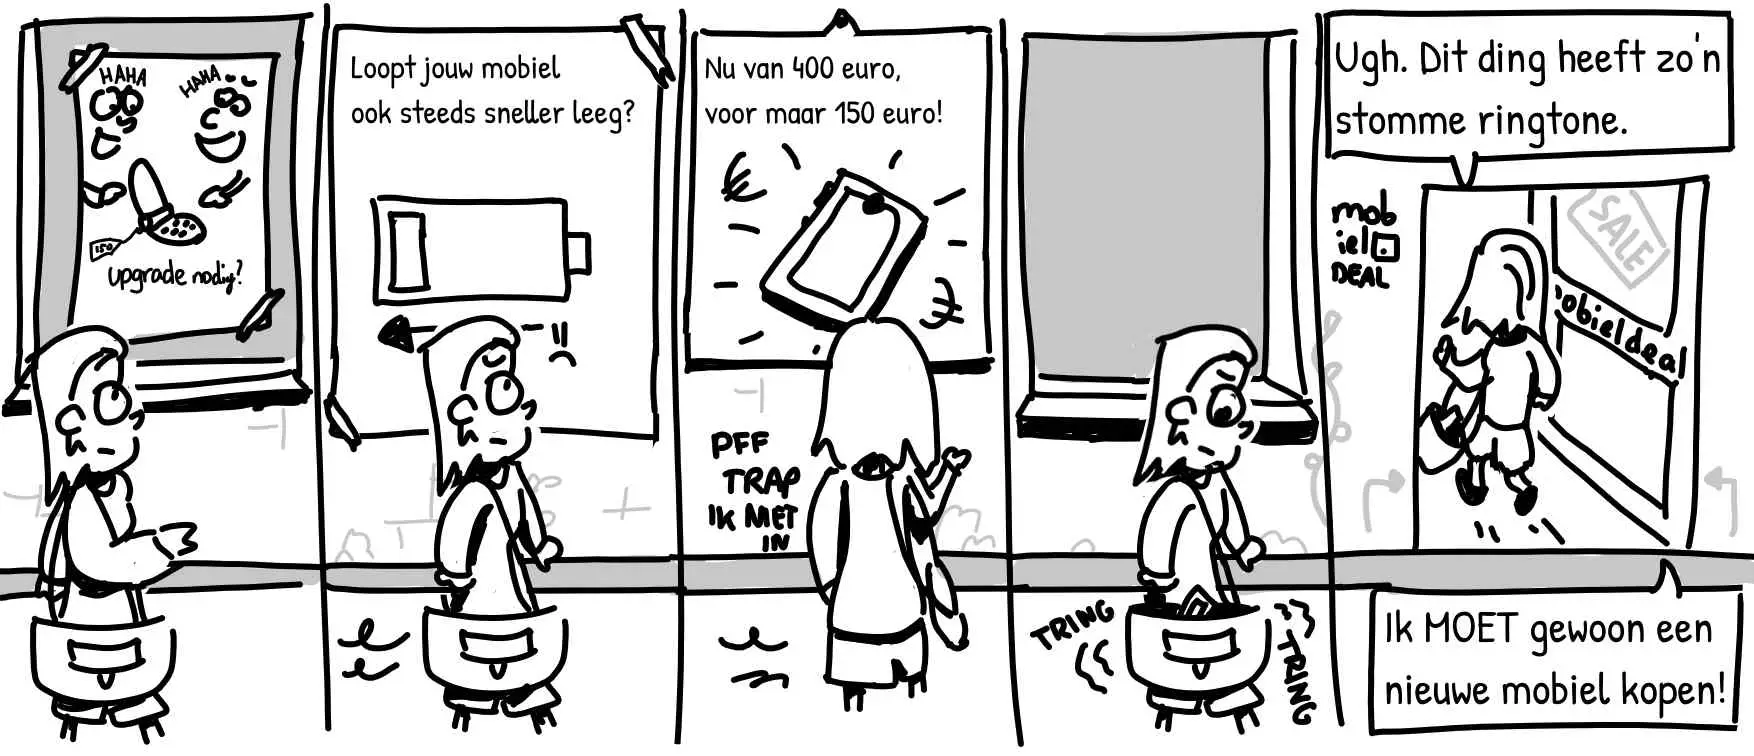 HAHA
HAHA
150
upgrade nodig?
Loopt jouw mobiel
ook steeds sneller leeg?
!!
Nu van 400 euro,
voor maar 150 euro!
€
€
PFF
TRAP
IK NIET
IN
TRING
TRING
Ugh. Dit ding heeft zo'n
stomme ringtone.
mob
iel
DEAL
SALE
obieldeal
Ik MOET gewoon een
nieuwe mobiel kopen!